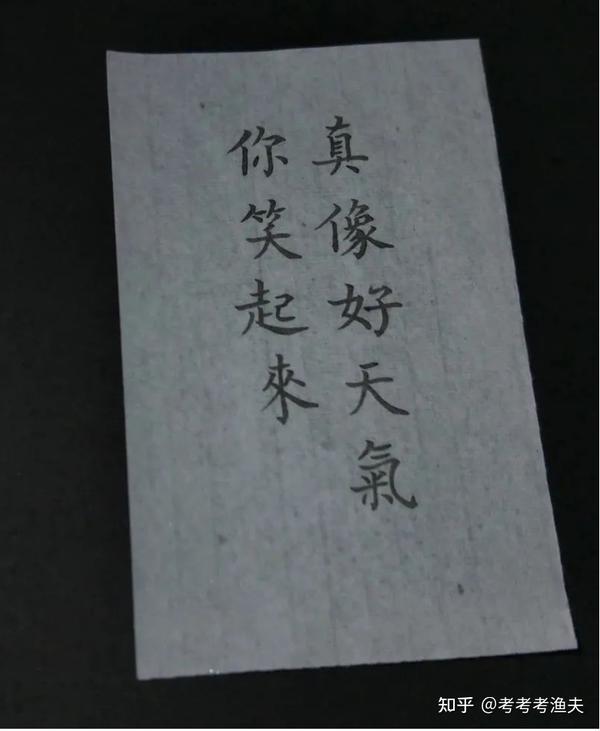 你笑起來
真像好天氣
知乎 @考考考渔夫